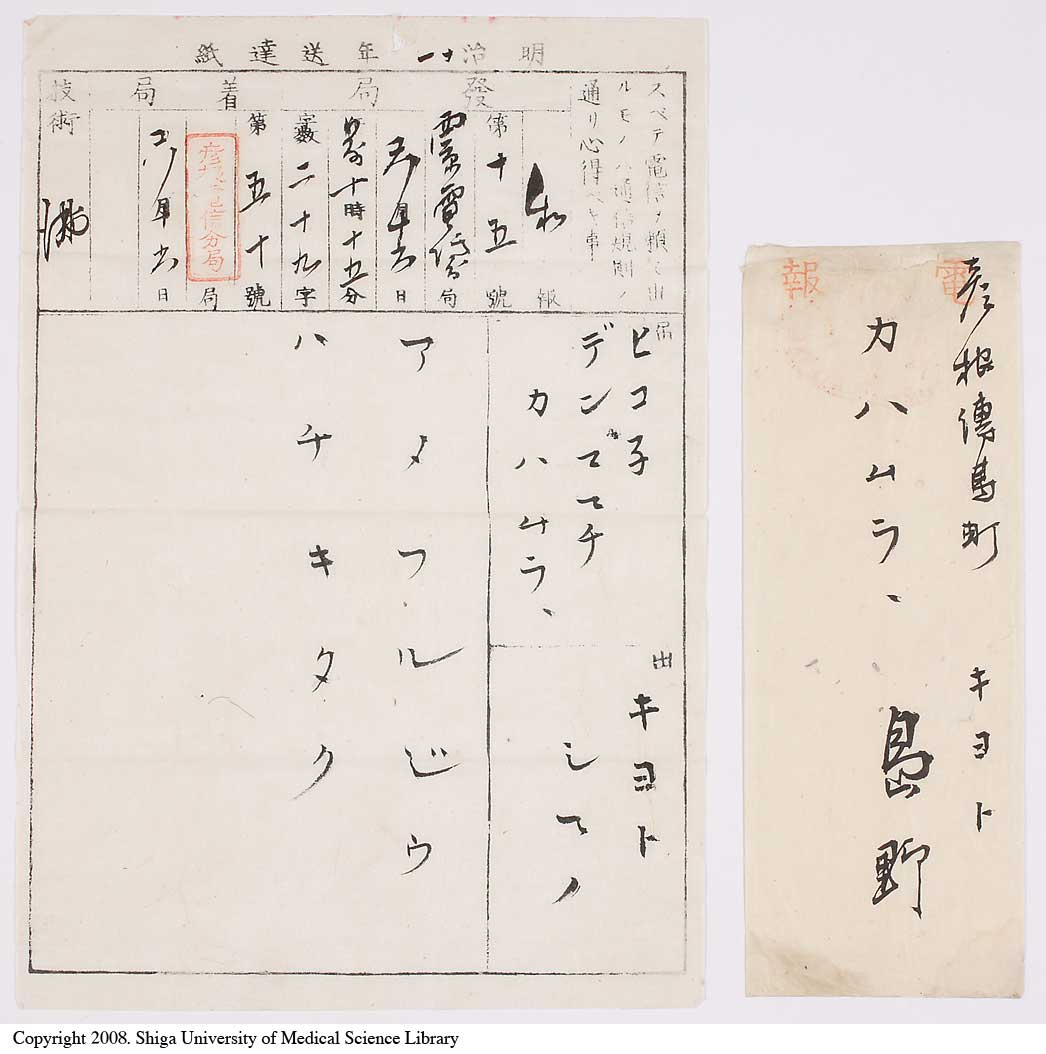 明治十一年送達紙
スベテ電信ヲ頼ミ出
ルモノハ通信規則ノ
通リ心得ベキ事
發局
着局
技術
私報
第十五號
西京電信局
五月十六日
前十時十五分
字數二十九字
第五十號
彦根電信分局
局
五月十六日
届
ヒコ子
デンマチ
カハムラ、
出
キヨト
シマノ
アメフルジウ
ハチキタク
電報
彦根傳馬町
カハムラ、
キヨト
島野
Copyright 2008. Shiga University of Medical Science Library